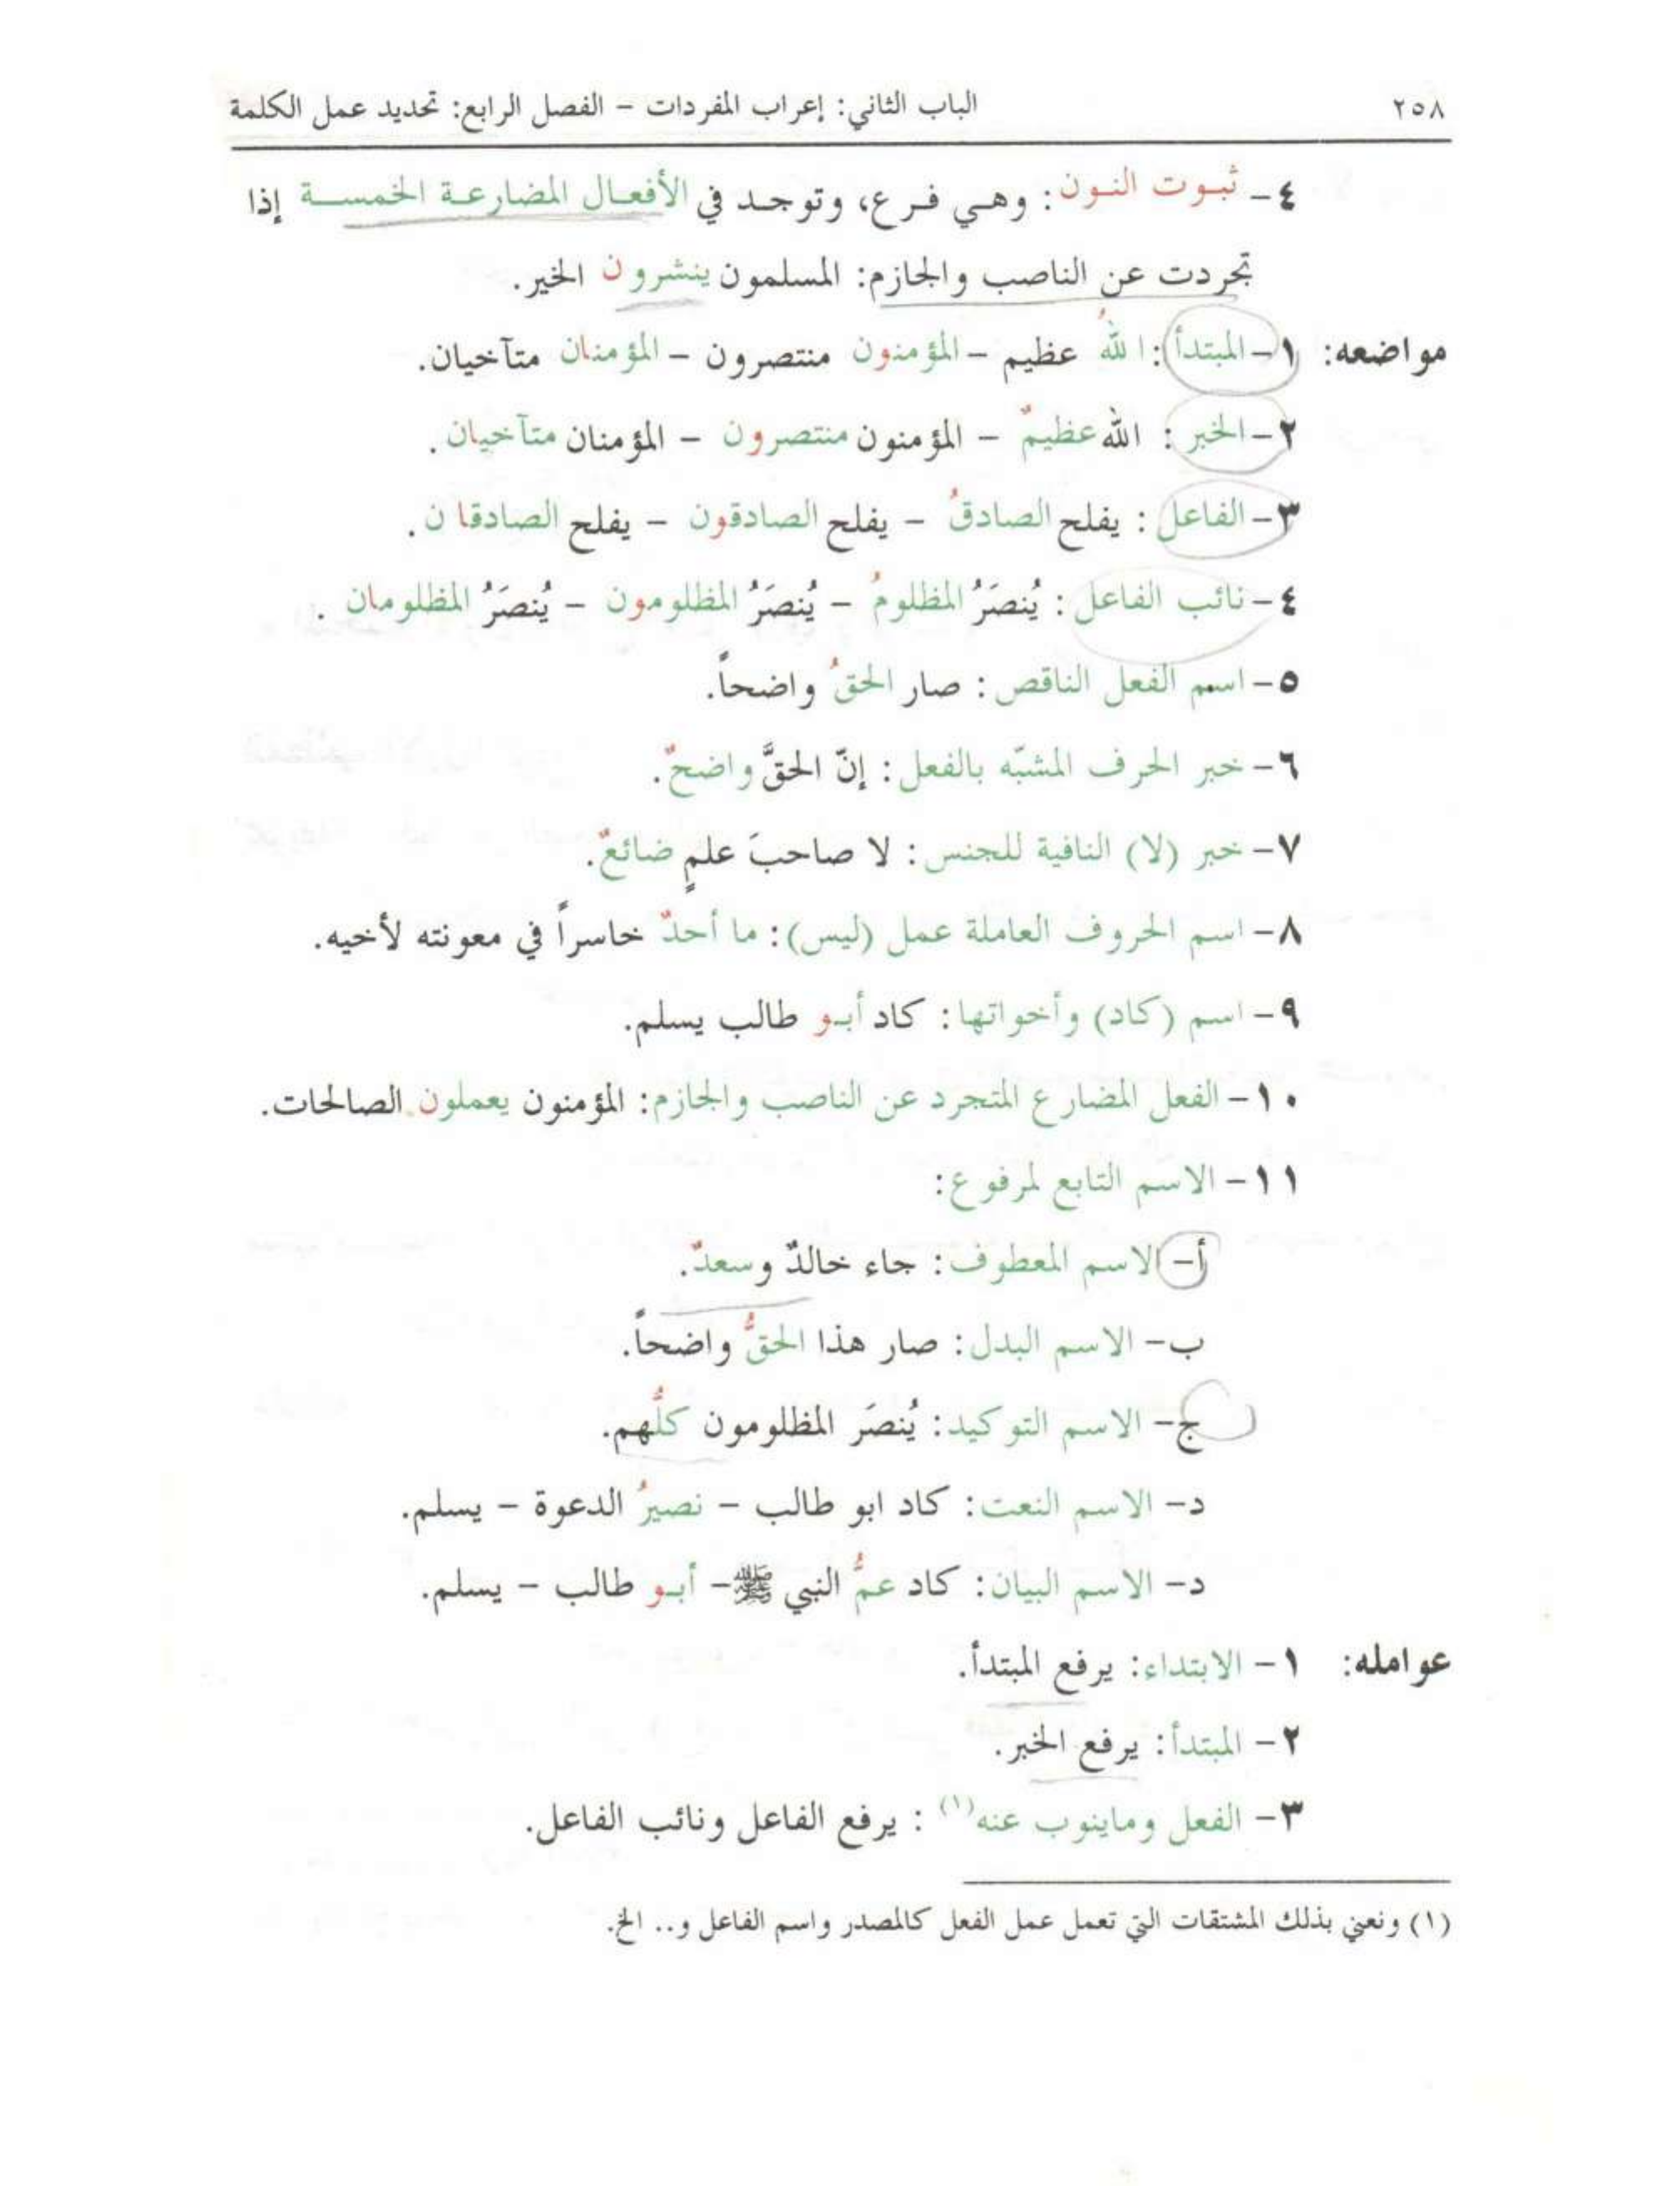 ٢٥٨ الباب الثاني: إعراب المفردات – الفصل الرابع: تحديد عمل الكلمة
٤ – ثبوت النون: وهي فرع، وتوجد في الأفعال المضارعة الخمسة إذا
تجردت عن الناصب والجازم: المسلمون ينشرون الخير.
مواضعه: ١ – المبتدأ: اللهُ عظيم – المؤمنون منتصرون – المؤمنان متآخيان.
٢ – الخبر: الله عظيمٌ – المؤمنون منتصرون – المؤمنان متآخيان.
٣ – الفاعل: يفلح الصادقُ – يفلح الصادقون – يفلح الصادقان.
٤ – نائب الفاعل: يُنصَرُ المظلومُ – يُنصَرُ المظلومون – يُنصَرُ المظلومان.
٥ – اسم الفعل الناقص: صار الحقُ واضحاً.
٦ – خبر الحرف المشبّه بالفعل: إنّ الحقَّ واضحٌ.
٧ – خبر (لا) النافية للجنس: لا صاحبَ علمٍ ضائعٌ.
٨ – اسم الحروف العاملة عمل (ليس): ما أحدٌ خاسراً في معونته لأخيه.
٩ – اسم (كاد) وأخواتها: كاد أبو طالب يسلم.
١٠ – الفعل المضارع المتجرد عن الناصب والجازم: المؤمنون يعملون الصالحات.
١١ – الاسم التابع لمرفوع:
أ – الاسم المعطوف: جاء خالدٌ وسعدٌ.
ب – الاسم البدل: صار هذا الحقُّ واضحاً.
ج – الاسم التوكيد: يُنصَرَ المظلومون كلُّهم.
د – الاسم النعت: كاد ابو طالب – نصيرُ الدعوة – يسلم.
د – الاسم البيان: كاد عمُّ النبي ﷺ – أبو طالب – يسلم.
عوامله: ١ – الابتداء: يرفع المبتدأ.
٢ – المبتدأ: يرفع الخبر.
٣ – الفعل وماينوب عنه(١) : يرفع الفاعل ونائب الفاعل.
(١) ونعني بذلك المشتقات التي تعمل عمل الفعل كالمصدر واسم الفاعل و.. الخ.